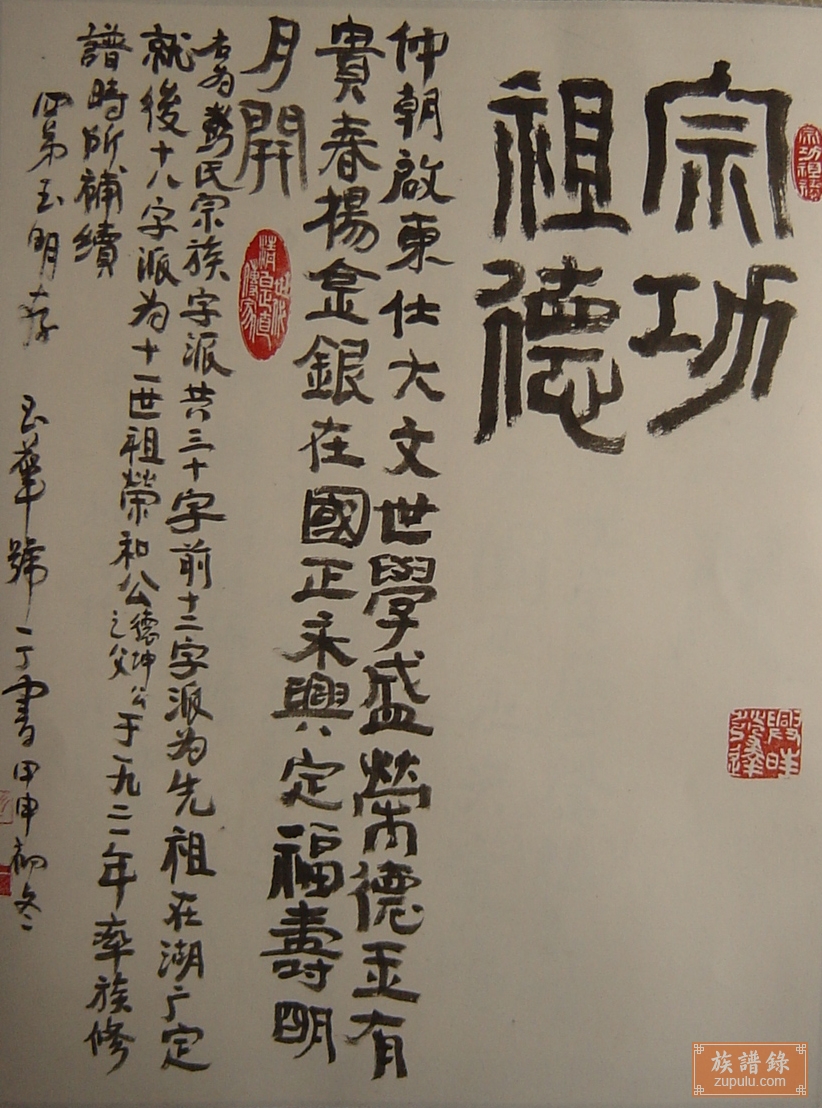 宗功
祖德
宗功祖德
仲朝啟東仕大文世學盛榮德玉有
貴春揚金銀在國正永興定福壽明
月開
右為氏宗族字派共三十字前十二字派為先祖在湖广定
就後十八字派为十一世祖榮和公德坤公之父于一九二一年率族修
譜時所補續
四弟玉明存 玉華號一丁書甲申初冬
興旺發達
族譜錄
zupulu.com